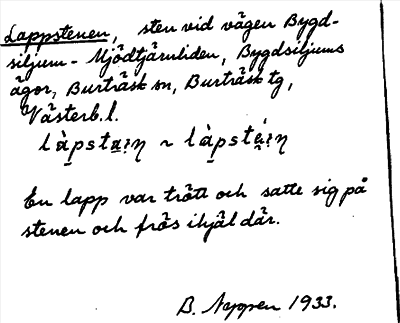 Lappstenen, sten vid vägen Bygd-
siljum - Mjödtjärnliden, Bygdsiljums
ägor, Burträsk sn, Burträsk tg,
Västerb. l.
En lapp var trött och satte sig på
stenen och frös ihjäl där.
B. 1933.